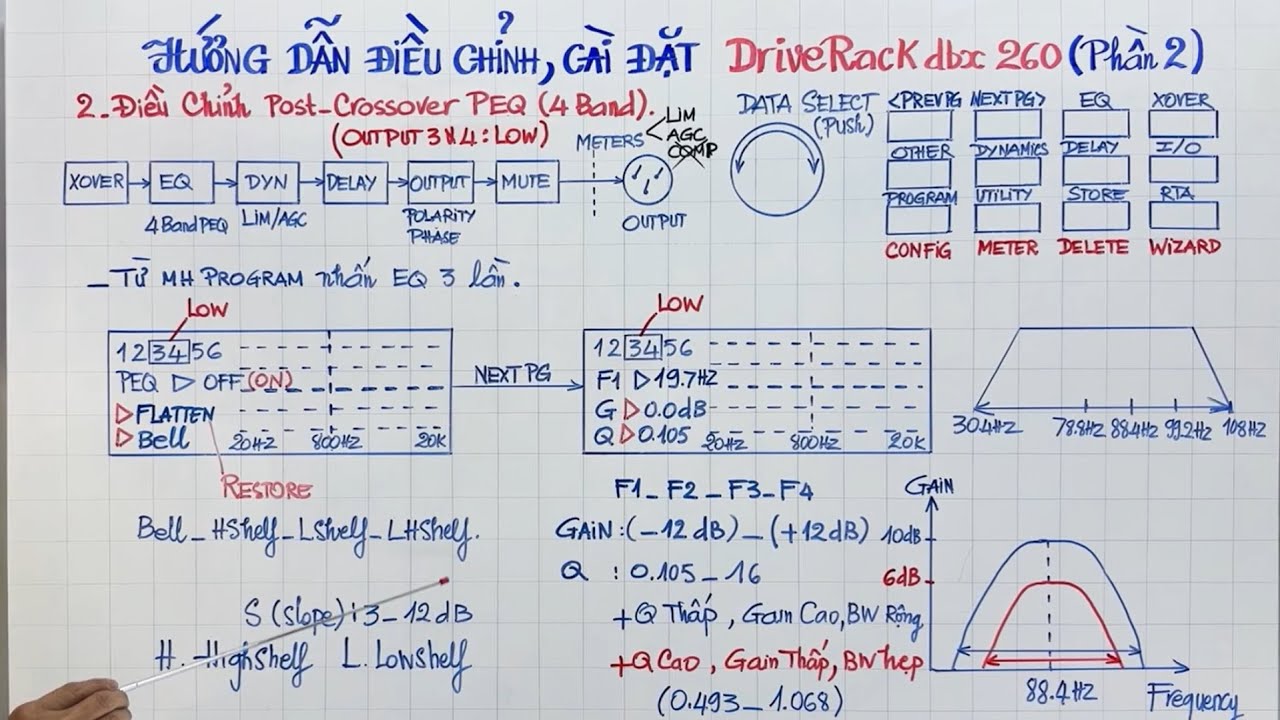 HƯỚNG DẪN ĐIỀU CHỈNH, CÀI ĐẶT DriveRack dbx 260 (Phần 2)
2. Điều Chỉnh Post-Crossover PEQ (4 Band).
(OUTPUT 3 & 4: LOW)
METERS
LIM
AGC
COMP
XOVER
EQ
DYN
DELAY
OUTPUT
MUTE
4 Band PEQ
LIM/AGC
POLARITY
PHASE
OUTPUT
DATA SELECT
(Push)
<PREV PG NEXT PG> EQ XOVER
OTHER DYNAMICS DELAY I/O
PROGRAM UTILITY STORE RTA
CONFIG METER DELETE WIZARD
_ Từ MH PROGRAM nhấn EQ 3 lần.
LOW
1 2 3 4 5 6
PEQ ▷ OFF (ON)
▷ FLATTEN
▷ Bell
20HZ 800HZ 20K
RESTORE
NEXT PG
LOW
1 2 3 4 5 6
F1 ▷ 19.7HZ
G ▷ 0.0dB
Q ▷ 0.105
20HZ 800HZ 20K
30.4HZ 78.8HZ 88.4HZ 99.2HZ 108HZ
Bell _ HShelf _ LShelf _ LHShelf.
S (Slope): 3 _ 12 dB
H. HighShelf L. LowShelf
F1 _ F2 _ F3 _ F4
GAIN : (-12 dB) _ (+12 dB)
Q : 0.105 _ 16
+Q Thấp, Gain Cao, BW Rộng
+Q Cao, Gain Thấp, BW hẹp
(0.493 _ 1.068)
GAIN
10dB
6dB
88.4HZ
Frequency